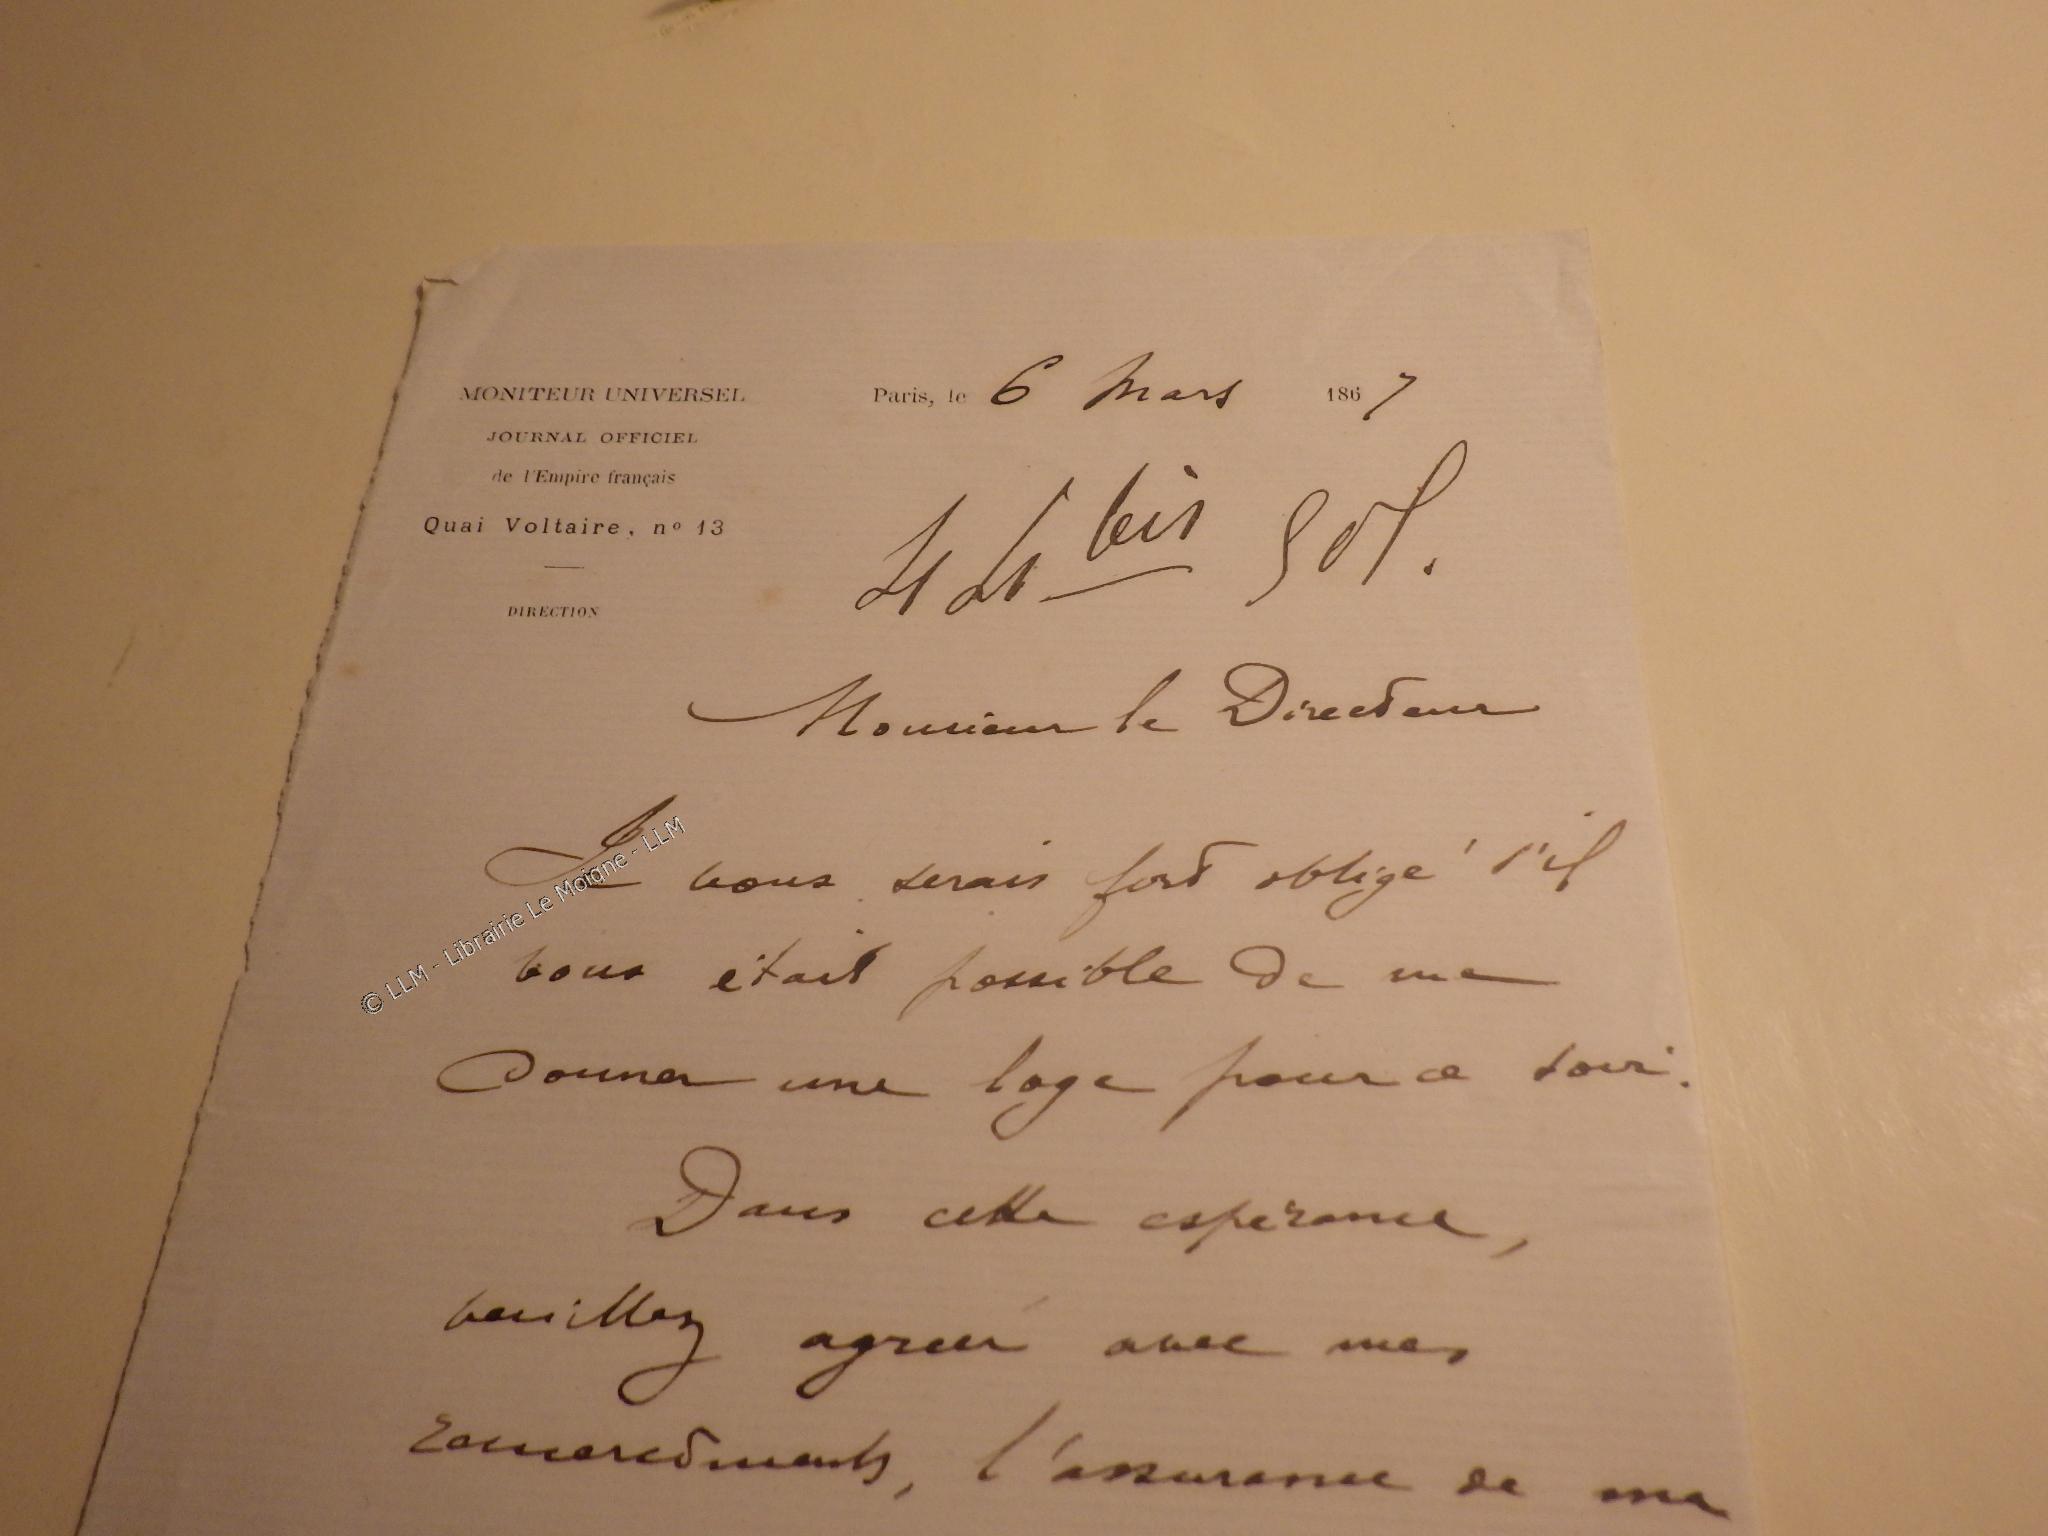 MONITEUR UNIVERSEL
JOURNAL OFFICIEL
de l'Empire français
Quai Voltaire, nº 13
DIRECTION
Paris, le 6 Mars 1867
44 bis
Monsieur le Directeur
Je vous serais fort obligé s'il
vous était possible de me
donner une loge pour ce soir.
Dans cette espérance,
veuillez agréer avec mes
remerciements, l'assurance de ma
© LLM - Librairie Le Moigne - LLM